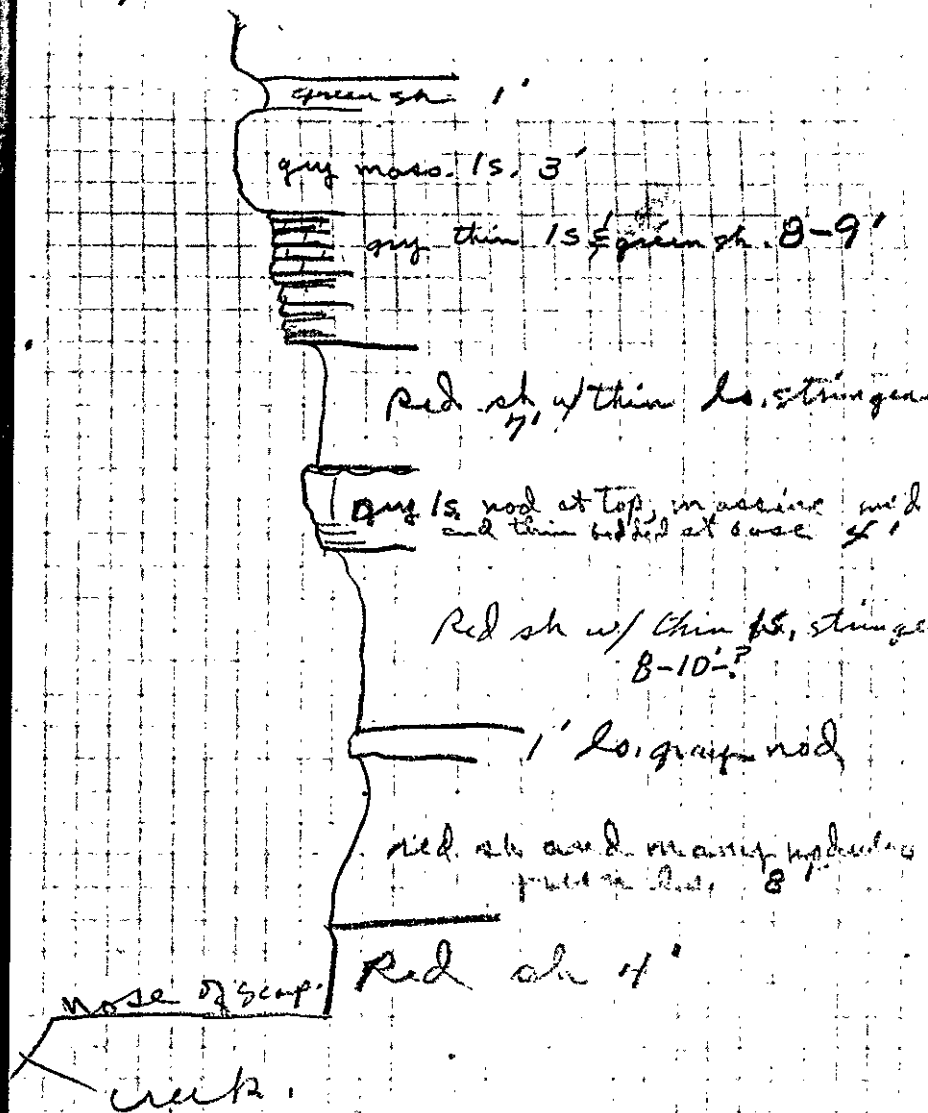 green sh. 1'
gry mass. ls. 3'
gry thin ls & green sh. 8-9'
Red sh w/ thin ls. stringer
7'
gry ls nod at top, massive mid
and thin bedded at base 4'
Red sh w/ thin ls, stringe
8-10'-?
1' ls. gray nod
red sh and many nodules
8'
Red sh 4'
nose of scarp.
creek.